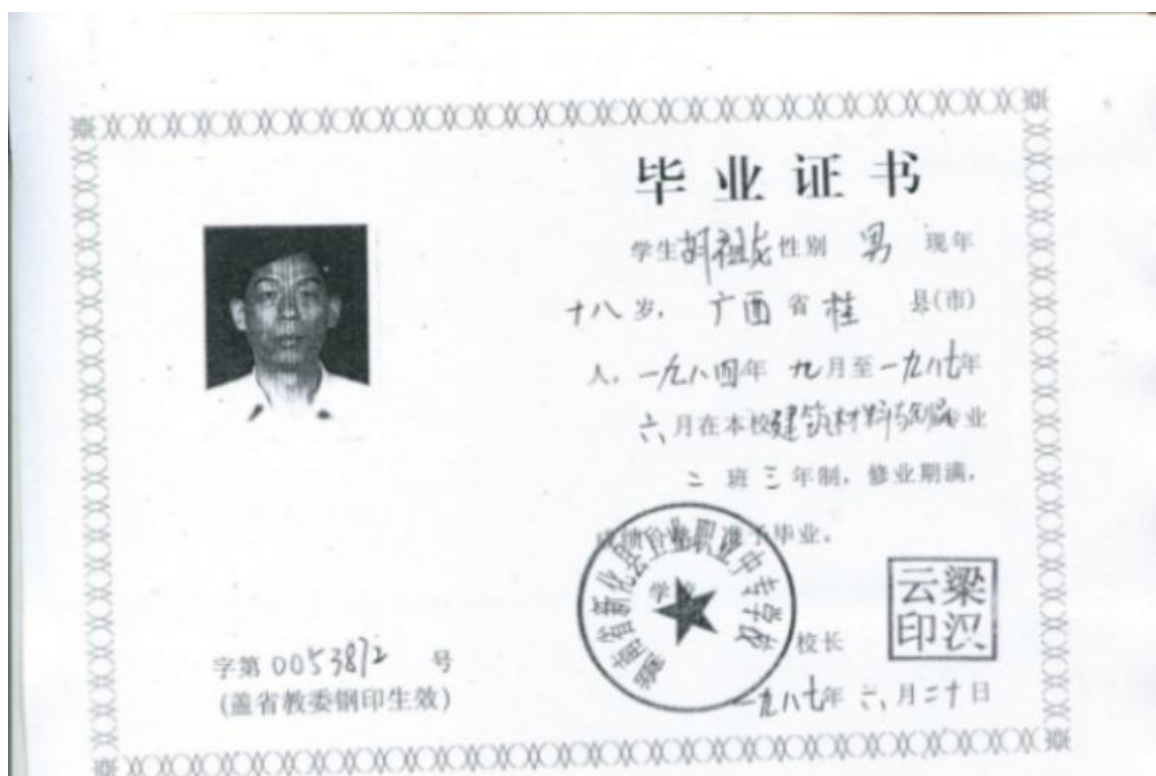 毕业证书
学生胡祖成性别 男 现年
十八岁，广西省桂 县(市)
人，一九八四年 九月至一九八七年
六月在本校建筑材料 专业
二 班三年制，修业期满，
准予毕业。
湖南省新化县工业职业中专学校
学校
校长
梁汉云印
一九八七年 六月二十日
字第0053872 号
(盖省教委钢印生效)